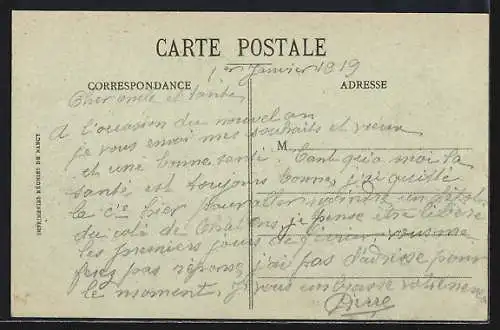 CARTE POSTALE
CORRESPONDANCE
ADRESSE
1er Janvier 1919
Cher oncle et tante,
A l'occasion du nouvel an
je vous envoi mes souhaits et vœux
et une bonne santé. Tant qu'a moi la
M
santé est toujours bonne, j'ai quitté
la Cie hier pour aller
du coté de Chalons, je pense être libéré
les premiers jours de février, vous me
pas réponse, j'ai pas d'adresse pour
le moment. Je vous embrasse votre neveu
Pierre
IMPRIMERIES RÉUNIES DE NANCY